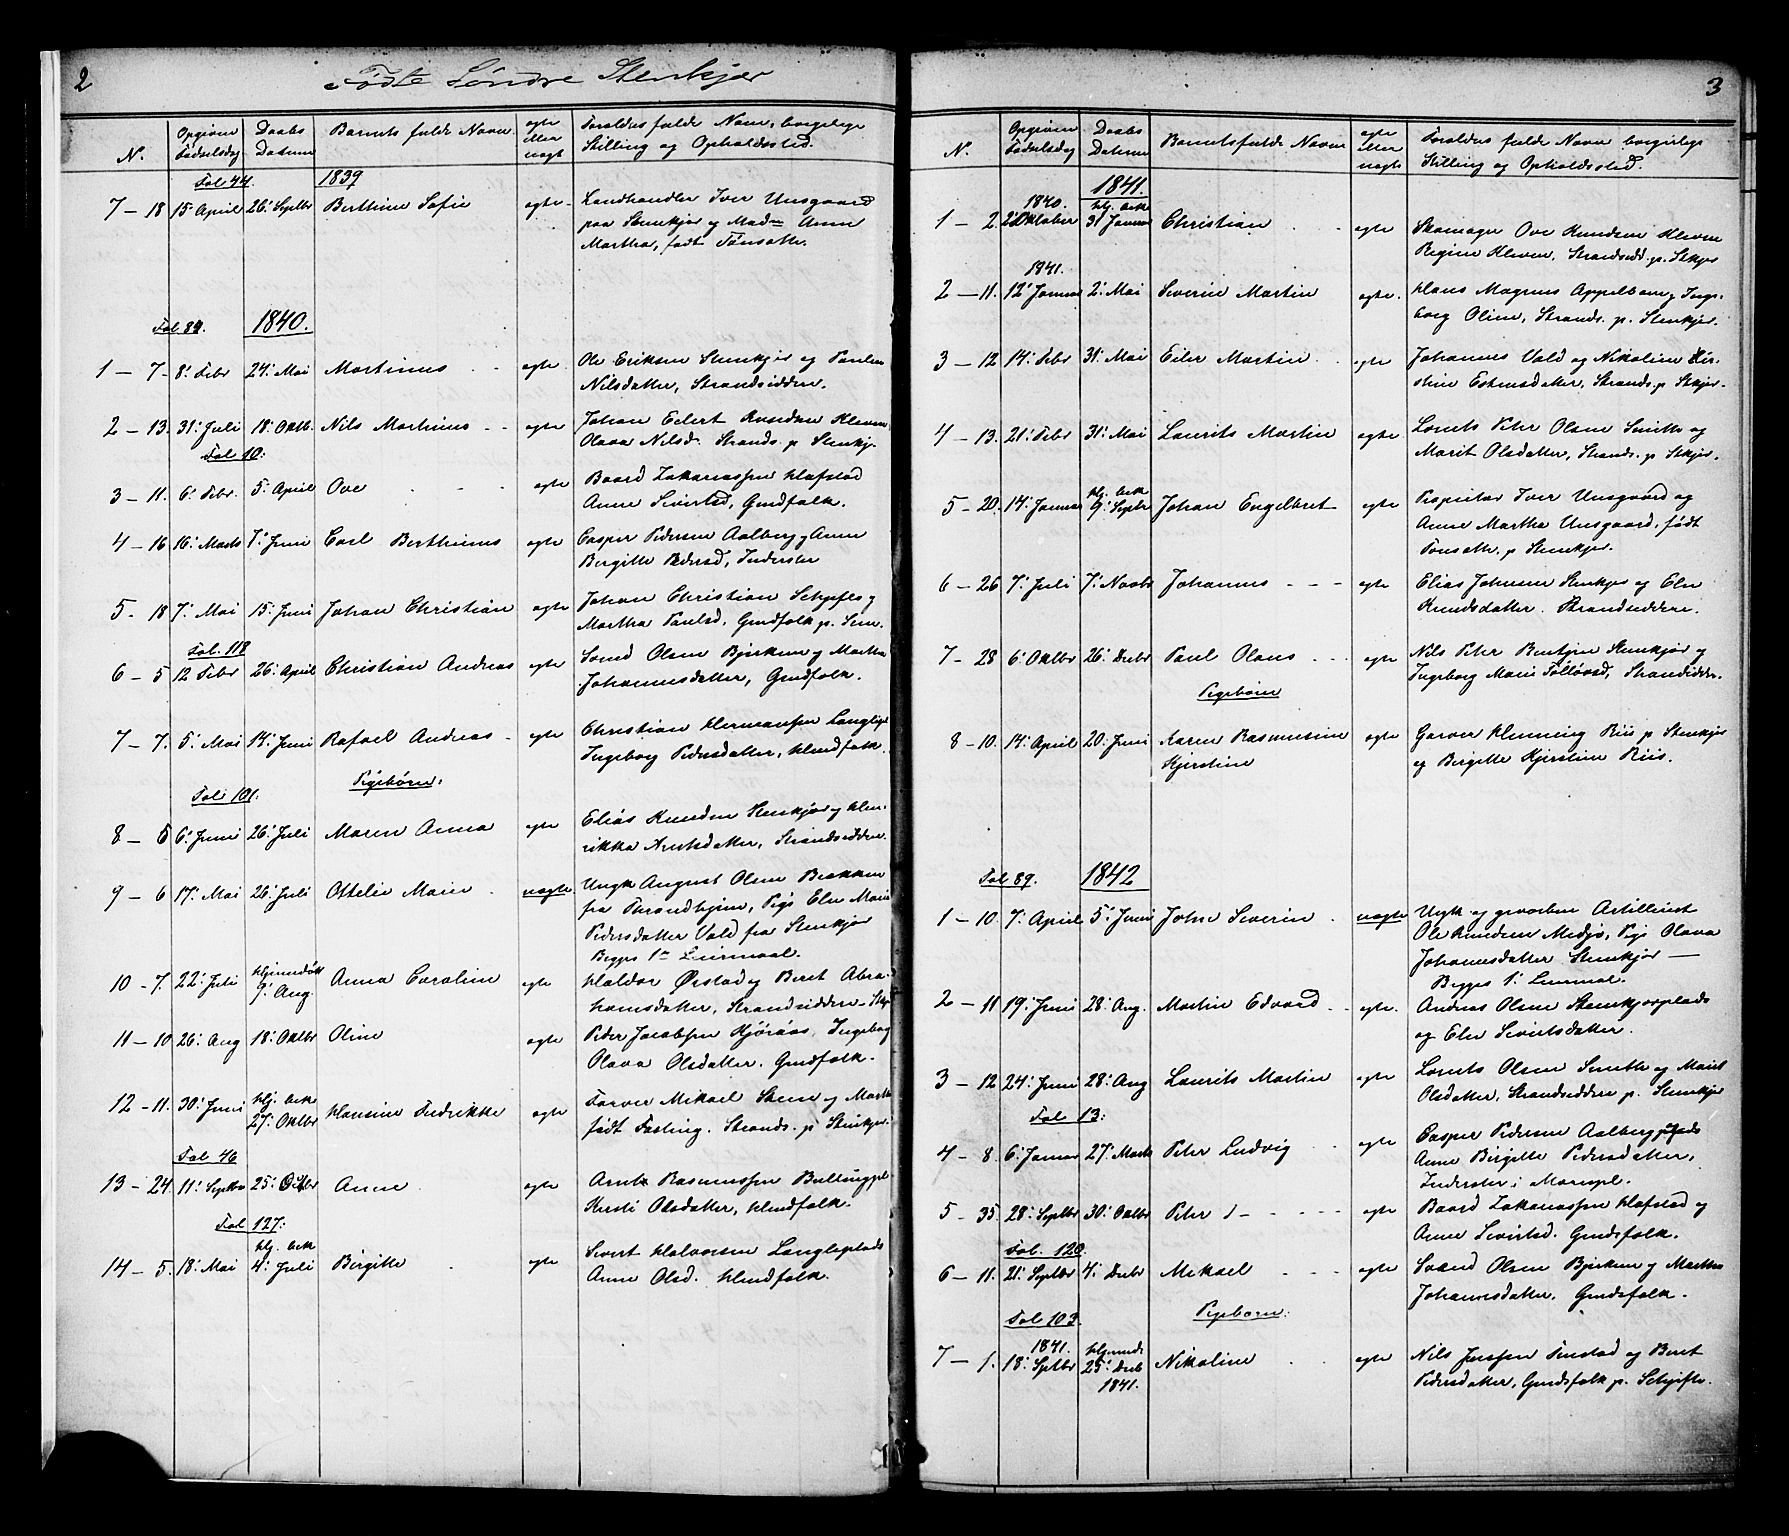 2
Fødte Søndre Stenkjær
N.
Opgiven Fødselsdag
Daabs Datum
Barnets fulde Navn
ægte eller uægt
Forældres fulde Navn, borgelige Stilling og Opholdssted.
Fol 44. 1839
7 - 18 15 April 26' Septbr Berthine Sofie ægte Landhandler Iver Unsgaard
paa Stenkjær og Mad. Anne
Martha, født
Fol 84. 1840.
1 - 7 - 8' Febr 24' Mai Martinus - - ægte Ole Eriksen Stenkjær og
Nilsdatter, Strandsidden.
2 - 13. 31' Juli 18' Oktb. Nils Martinus - - ægte Johan Eilert Kleven
Olava Nilsd. Strands. p. Stenkj.
Fol 10:
3 - 11. 6' Febr. 5' April Ove - - - ægte Baard Zakariassen Hafstad
Anne Sivertsd, Gmdfolk.
4 - 16 16' Marts 7' Juni Carl Berthinus ægte Casper Pedersen Aalberg og Anne
Birgitte Pedersd, Inderster
5 - 18 7' Mai 15' Juni Johan Christian ægte Johan Christian og
Martha Paulsd, Gmdfolk p.
Fol. 118
6 - 5 12 Febr 26' April Christian Andreas ægte Svend Olsen Bjerkem og Martha
Johannesdatter, Gmdfolk.
7 - 7. 5' Mai 14' Juni Rafael Andreas - ægte Christian Hermansen
Ingeborg Pedersdatter, Hmdfolk.
Pigebørn:
Fol 101.
8 - 5 6' Juni 26' Juli Maren Anna ægte Elias Knudsen Stenkjær og Hen-
rikka Arntsdatter, Strandsidden.
9 - 6 17' Mai 26' Juli Othelie Marie - uægte. Ungk August Olsen Brekken
fra Throndhjem, Pige Elen Marie
Pedersdatter Vold fra Stenkjær
Begges 1ste Leiermaal.
10 - 7. 22' Juli Hjemmedøbt 9' Aug. Anna Caroline ægte Haldor Ørstad og Beret Abra-
hamsdatter, Strandsidden - Stkj.
11 - 10 26' Aug 18' Oktbr Oline ægte Peder Jacobsen Ingeborg
Olava Olsdatter. Gmdfolk.
12 - 11. 30' Juni Hj. bek 27' Oktbr Hansine Fredrikke ægte Farver Mikael Steen og Martha
født Fasting. Strands. p. Stenkjær.
Fol 46
13 - 24. 11' Septbr 25' Oktbr Anne ægte Arnt Rasmussen
Kirsti Olsdatter, Hmdfolk.
Fol 127:
14 - 5. 18' Mai Hj. bek 4' Juli Birgitte ægte Sivert Halvorsen
Anne Olsd. Hmdfolk.
3
N.
Opgiven Fødselsdag
Daabs Datum
Barnets fulde Navn
ægte eller uægte
Forældres fulde Navn borgerlige Stilling og Opholdssted.
1841.
1 - 2. 1840. 2' Oktober Hj. bek 31 Januar Christian - - ægte Skomager Ove Knudsen Kleven
Regine Kleven, Strandsidd. p. Stkjær
1841.
2 - 11. 12' Januar 2' Mai Severin Martin ægte. Hans Magnus Appelbom og Inge-
borg Oline, Strands. p. Stenkjær.
3 - 12 14' Febr 31' Mai Eiler Martin - ægte Johannes Vold og Nikoline Kir-
stine Estensdatter, Strands. p Stkjær.
4 - 13. 21' Febr 31' Mai Laurits Martin ægte Lorits Peter Olsen Smith og
Marit Olsdatter, Strands. p. Stkjær.
5 - 20. 14' Januar Hj. bek 9' Septbr Johan Engelbret ægte Propritær Iver Unsgaard og
Anne Martha Unsgaard, født
p. Stenkjær.
6 - 26 7' Juli 7' Novbr Johannes - - - ægte Elias Johnsen Stenkjær og Elen
Knudsdatter. Strandsidden.
7 - 28 6' Oktbr 26' Decbr Paul Olaus - - - ægte Nils Peter Berntsen Stenkjær og
Ingeborg Marie Strandsidden.
Pigebørn
8 - 10. 14' April 20' Juni Karen Rasmusine Kjerstine ægte Garver Henning Riis p. Stenkjær
og Birgitte Kjerstine Riis.
Fol 89. 1842
1 - 10. 7' April 5' Juni John Severin - uægte Ungk og gevorben Artillerist
Ole Knudsen Medjø, Pige Olava
Johannesdatter Stenkjær —
Begges 1' Leiermal.
2 - 11 19' Juni 28' Aug. Martin Edvard - - ægte. Andreas Olsen Stenkjærplads
og Elen Sivertsdatter.
3 - 12 24' Juni 28' Aug Laurits Martin ægte Lorits Olsen Smith og Marit
Olsdatter, Strandsidden p. Stenkjær
Fol 13:
4 - 8 6' Januar 27' Marts Peter Ludvig - - ægte Casper Pedersen Aalberg
Anne Birgitte Pedersdatter,
Inderster i
5 - 35. 28' Septbr 30' Oktbr Peter - - - - ægte Baard Zakariassen Hafstad og
Anne Sivertsd. Gmdsfolk.
Fol. 120.
6 - 11. 21' Septbr 4' Decbr Mikael - - - ægte Svend Olsen Bjerkem og Martha
Johannesdatter. Gmdsfolk.
Fol 103. Pigebørn:
7 - 1. 1841. 18' Septbr Hjemmed. 25' Decb 1841. Nikoline - - ægte Nils Jensen og Beret
Pedersdatter, Gmdsfolk p.